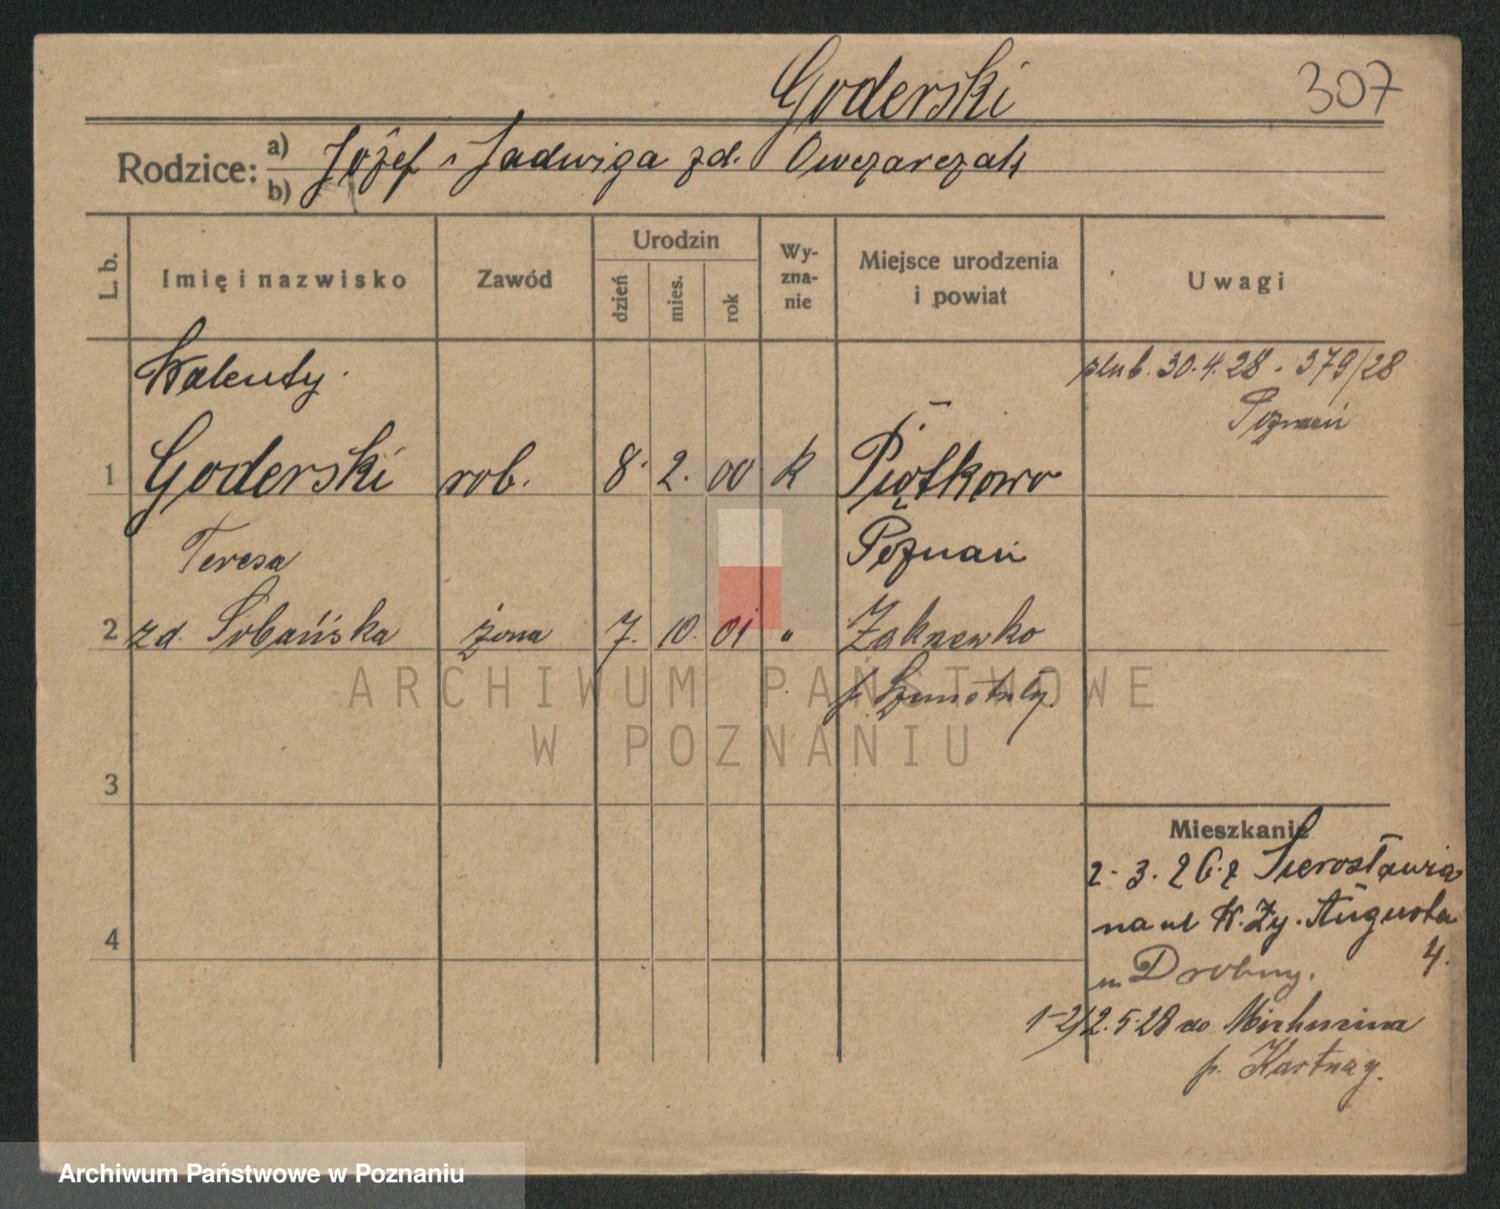 Goderski 307
Rodzice: a) b) Józef i Jadwiga zd. Owczarczak
L. b. Imię i nazwisko Zawód Urodzin dzień mies. rok Wyznanie Miejsce urodzenia i powiat Uwagi
Walenty ślub. 30.4.28 - 379/28
Poznań
1 Goderski rob. 8. 2. 00 k Piątkowo
Teresa Poznań
2 zd. Sobańska żona 7. 10. 01 " Zakrzewko
p. Szamotuły
ARCHIWUM PAŃSTWOWE
W POZNANIU
3
Mieszkanie
2.3.26 z Sierosławia
na ul K. Zy. Augusta
4 4.
m Drobny.
1-2/2.5.28 do
p. Kartuzy.
Archiwum Państwowe w Poznaniu